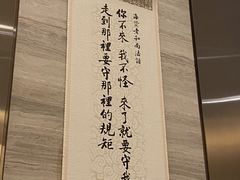 海賢老和尚法語
你不來 我不怪 來了就要守我
走到那裡要守那裡的規矩